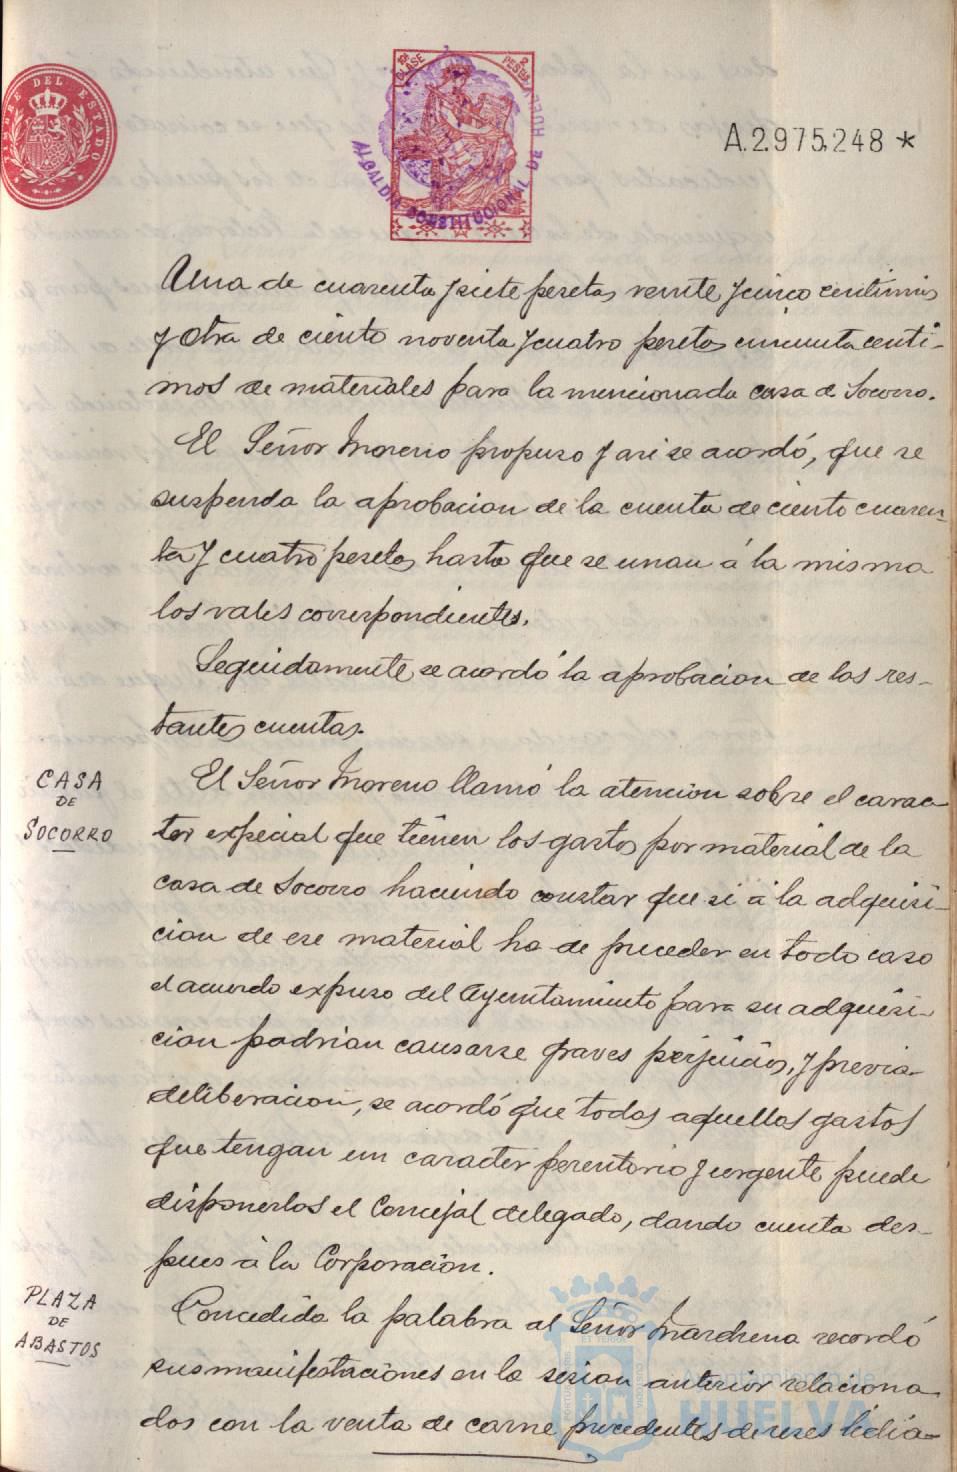 TIMBRE DEL ESTADO
10ª CLASE
2 PESETAS
ALCALDIA CONSTITUCIONAL DE HUELVA
A.2.975,248 *
Una de cuarenta y siete pesetas veinte y cinco centimos
y otra de ciento noventa y cuatro pesetas cincuenta centi-
mos de materiales para la mencionada casa de Socorro.
El Señor Moreno propuso y asi se acordó, que se
suspenda la aprobacion de la cuenta de ciento cuaren-
ta y cuatro pesetas hasta que se unan á la misma
los vales correspondientes.
Seguidamente se acordó la aprobacion de las res-
tantes cuentas.
CASA
DE
SOCORRO
El Señor Moreno llamó la atencion sobre el carac-
ter especial que tienen los gastos por material de la
casa de Socorro haciendo constar que si á la adquisi-
cion de ese material ha de preceder en todo caso
el acuerdo expreso del Ayuntamiento para su adquisi-
cion podrian causarse graves perjuicios, y previa
deliberacion, se acordó que todos aquellos gastos
que tengan un caracter perentorio y urgente puede
disponerlos el Concejal delegado, dando cuenta des-
pues á la Corporacion.
PLAZA
DE
ABASTOS
Concedida la palabra al Señor Marchena recordó
sus manifestaciones en la sesion anterior relaciona-
dos con la venta de carne procedentes de reses lidia-
Ayuntamiento de
HUELVA